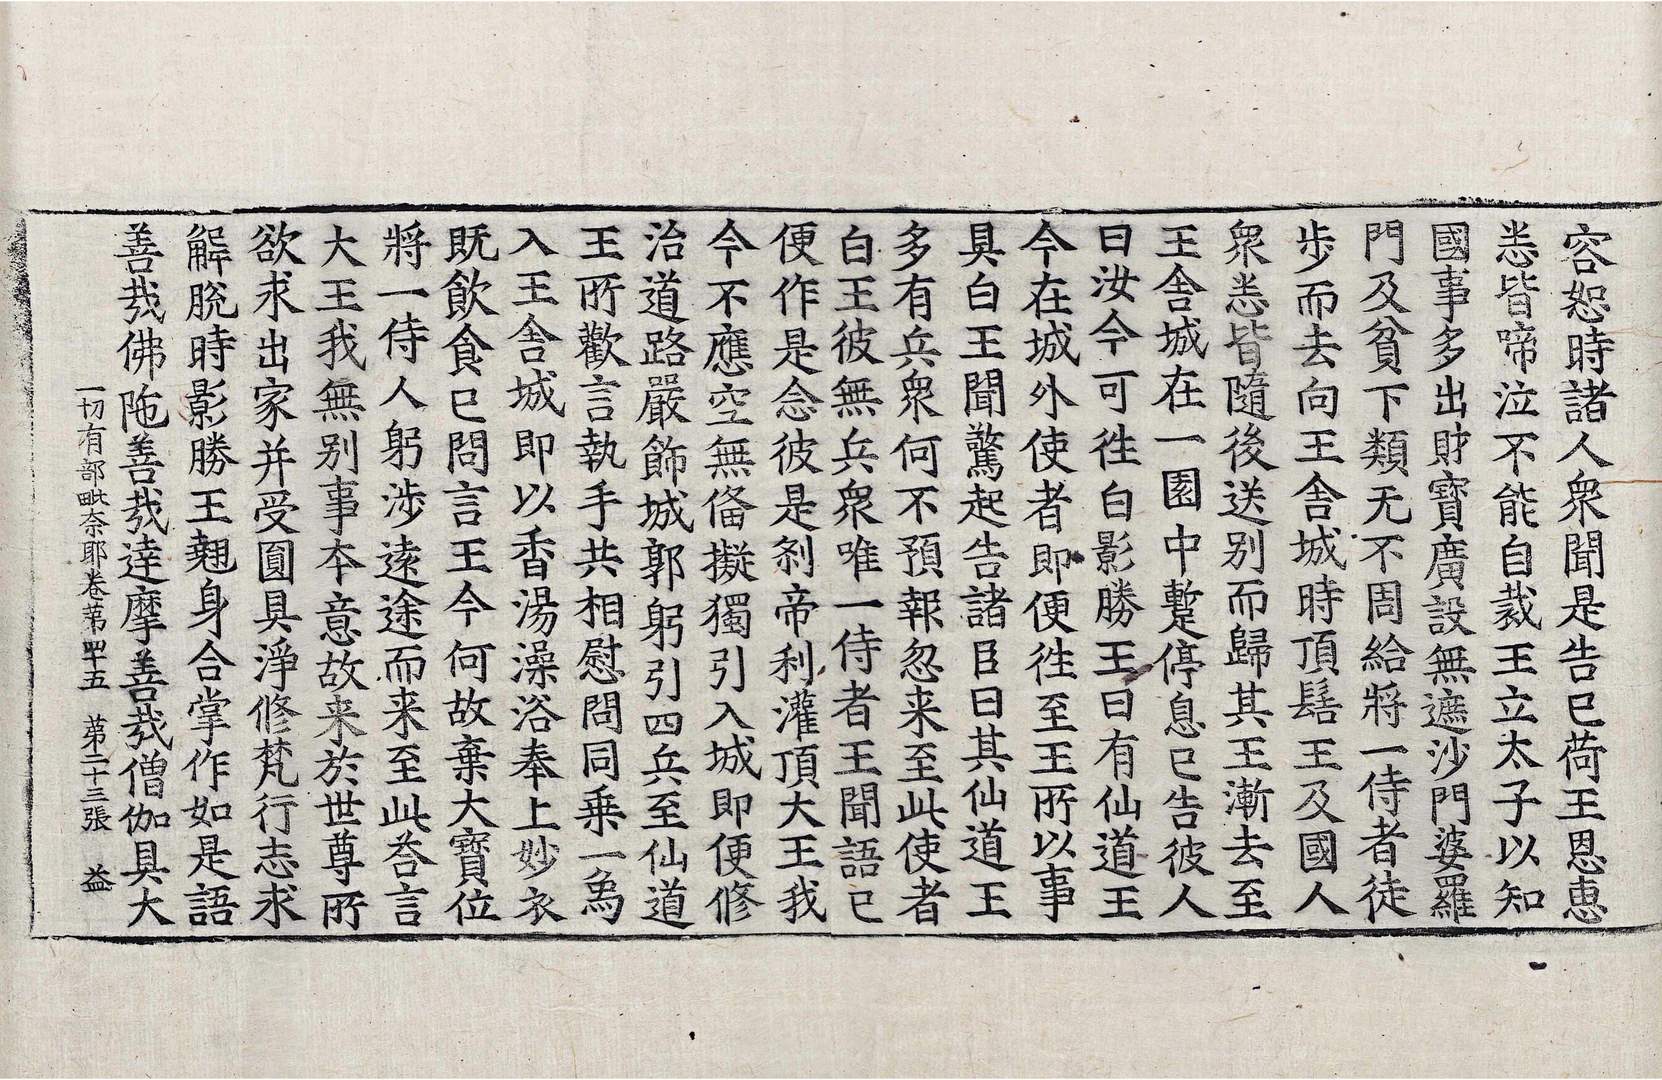 容恕時諸人衆聞是告已荷王恩惠
悉皆啼泣不能自裁王立太子以知
國事多出財寶廣設無遮沙門婆羅
門及貧下類无不周給將一侍者徒
步而去向王舍城時頂髻王及國人
衆悉皆隨後送別而歸其王漸去至
王舍城在一園中蹔停息已告彼人
曰汝今可往白影勝王曰有仙道王
今在城外使者即便往至王所以事
具白王聞驚起告諸臣曰其仙道王
多有兵衆何不預報忽来至此使者
白王彼無兵衆唯一侍者王聞語已
便作是念彼是剎帝利灌頂大王我
今不應空無俻擬獨引入城即便修
治道路嚴飾城郭躬引四兵至仙道
王所歡言執手共相慰問同乗一爲
入王舍城即以香湯澡浴奉上妙衣
既飲食已問言王今何故棄大寶位
將一侍人躬涉遠途而来至此荅言
大王我無別事本意故来於世尊所
欲求出家并受圓具淨修梵行志求
解脫時影勝王翹身合掌作如是語
善哉佛陁善哉達摩善哉僧伽具大
一切有部毗奈耶卷苐四十五 苐二十三張 益